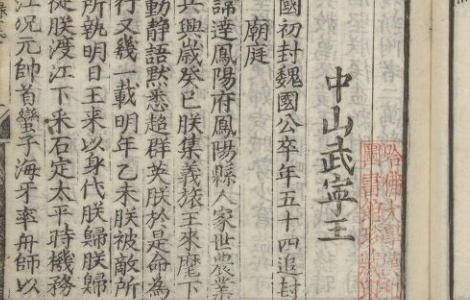 中山武寧王
國初封魏國公卒年五十四追封
廟庭
諱達鳳陽府鳳陽縣人家世農業
共興歲癸巳朕集義旅王來麾下
動静語默悉超群英朕於是命為
行又幾一載明年乙未朕被敵所
所執明日王来以身代朕歸朕歸
從朕渡江下采石定太平時機務
江况元帥首蠻子海牙率舟師以